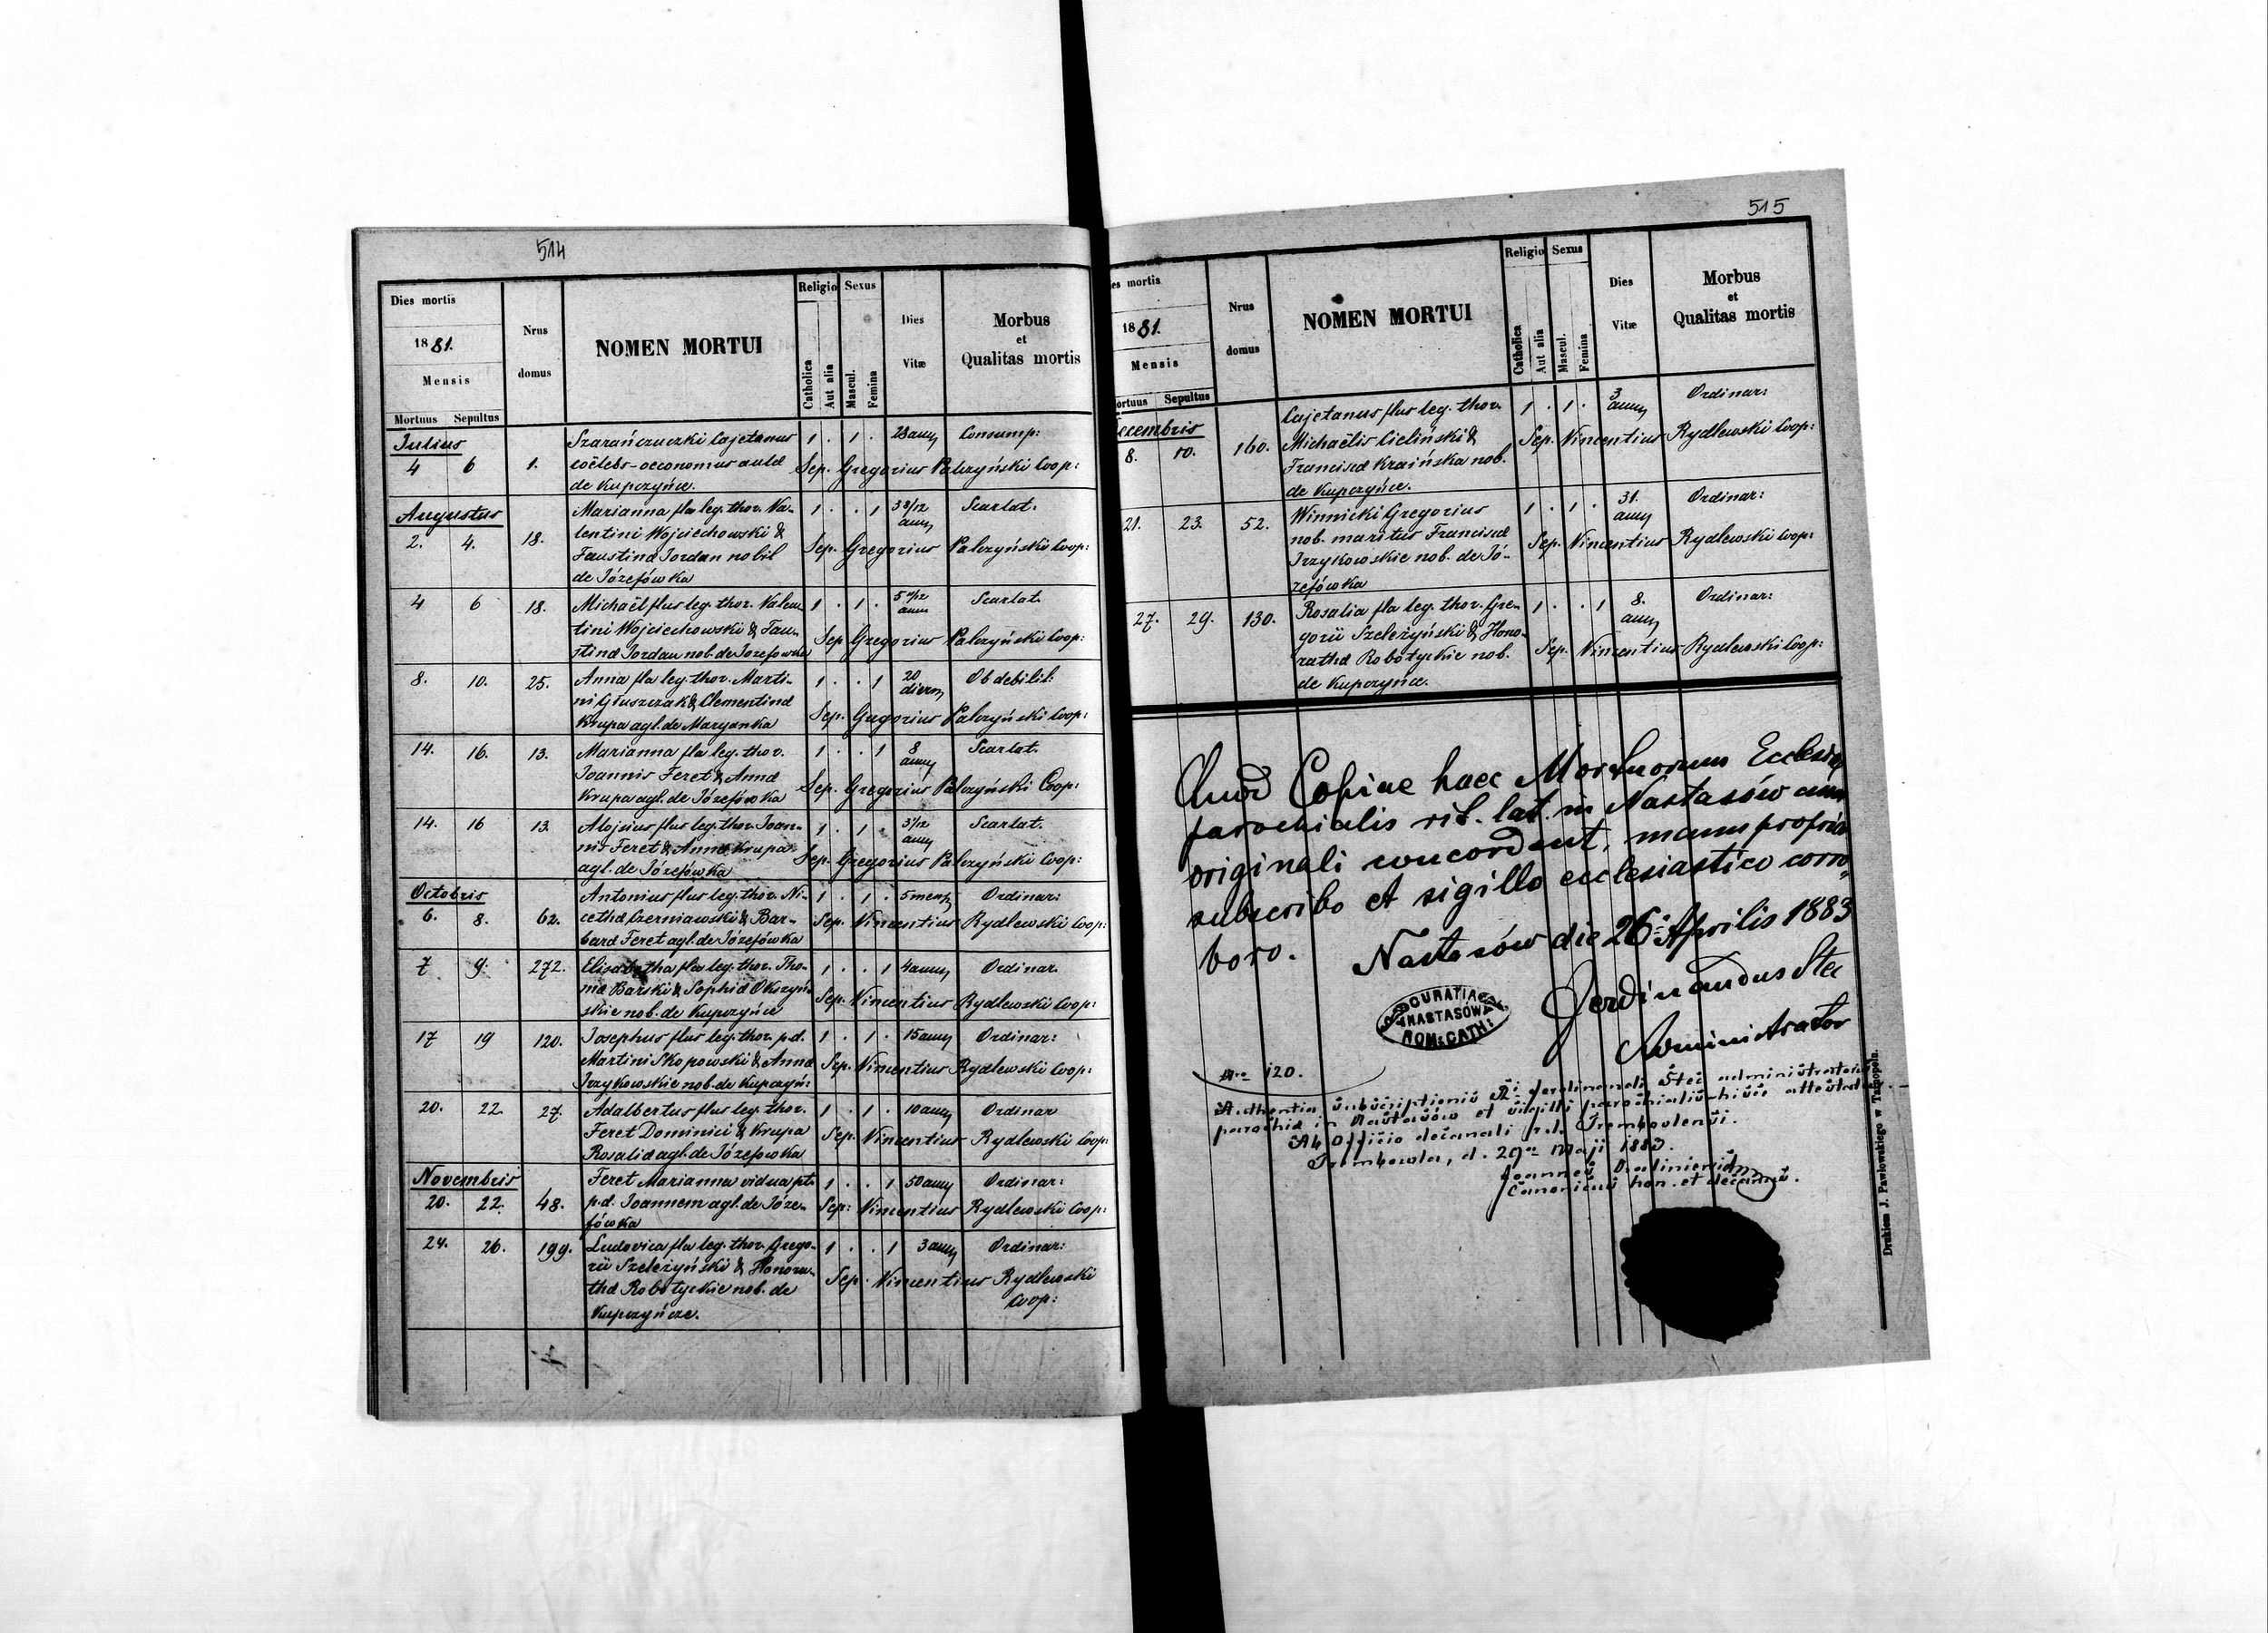 514
Dies mortis
1881.
Mensis
Mortuus Sepultus
Nrus
domus
NOMEN MORTUI
Religio
Catholica
Aut alia
Sexus
Mascul.
Femina
Dies
Vitæ
Morbus
et
Qualitas mortis
Julius
4 6 1.
Szarańczuczki Cajetanus
coëlebs-oeconomus aulæ
de Kupczyńce.
1 . 1 . 28 annq Consump:
Sep. Gregorius Palczyński Coop:
Augustus
2. 4. 18.
Marianna fla leg. thor. Va-
lentini Wojciechowski &
Faustinæ Jordan nobil
de Józefówka
1 . . 1 3 8/12 annq Scarlat.
Sep. Gregorius Palczyński Coop:
4 6 18.
Michaël flus leg. thor. Valen
tini Wojciechowski & Fau-
stinæ Jordan nob. de Jozefowka
1 . 1 . annn Scarlat.
Sep. Gregorius Palczyński Coop:
8. 10. 25.
Anna fla leg. thor. Marti-
ni Głuszczak & Clementinæ
Krupa agl. de Maryanka
1 . . 1 20 dierm Ob debilit.
Sep. Gregorius Palczyński Coop:
14. 16. 13.
Marianna fla leg. thor.
Joannis Feret & Annæ
Krupa agl. de Józefówka
1 . . 1 8 annq Scarlat.
Sep. Gregorius Palczyński Coop:
14. 16 13
Alojsius flus leg. thor. Joan-
nis Feret & Annæ Krupa
agl. de Józefówka
1 . 1 . 3/12 annq Scarlat.
Sep. Gregorius Palczyński Coop:
Octobris
6. 8. 62.
Antonius flus leg. thor. Ni-
cethæ Czerniawski & Bar-
baræ Feret agl. de Józefówka
1 . 1 . 5 mens Ordinar:
Sep. Vincentius Rydlewski Coop:
7 9. 272.
Elisabetha fla leg. thor. Tho-
mæ Barski & Sophiæ Okszyń-
skie nob. de Kupczyńce
1 . . 1 4 annq Ordinar.
Sep. Vincentius Rydlewski Coop:
17 19 120.
Josephus flus leg. thor. p.d.
Martini Skopowski & Annæ
Irzykowskie nob. de Kupczyń:
1 . 1 . 15 annq Ordinar:
Sep. Vincentius Rydlewski Coop:
20. 22. 27.
Adalbertus flus leg. thor.
Feret Dominici & Krupa
Rosaliæ agl. de Józefowka
1 . 1 . 10 annq Ordinar
Sep. Vincentius Rydlewski Coop
Novembris
20. 22. 48.
Feret Marianna vidua pt.
p.d. Joannem agl. de Józe-
fówka
1 . . 1 50 annq Ordinar:
Sep: Vincentius Rydlewski Coop:
24. 26. 199.
Ludovica fla leg. thor. Grego-
rii Szeleżyński & Honora-
thæ Robotyckie nob. de
Kupczyńcze.
1 . . 1 3 annq Ordinar:
Sep. Vincentius Rydlewski
Coop:
515
es mortis
1881.
Mensis
ortuus Sepultus
Nrus
domus
NOMEN MORTUI
Religio
Catholica
Aut alia
Sexus
Mascul.
Femina
Dies
Vitæ
Morbus
et
Qualitas mortis
ecembris
8. 10. 160.
Cajetanus flus leg. thor.
Michaëlis Cieliński &
Franciscæ Kraińska nob.
de Kupczyńce.
1 . 1 . 3 annq Ordinar:
Sep. Vincentius Rydlewski Coop:
21. 23. 52.
Winnicki Gregorius
nob. maritus Franciscæ
Irzykowskie nob. de Jó-
zefówka
1 . 1 . 31. annq Ordinar:
Sep. Vincentius Rydlewski Coop:
27. 29. 130.
Rosalia fla leg. thor. Gre-
gorii Szeleżyński & Hono-
rathæ Robotyckie nob.
de Kupczyńce.
1 . . 1 8. annq Ordinar:
Sep. Vincentius Rydlewski Coop:
Quod Copiae haec Mortuorum Ecclesiæ
parochialis rit. lat. in Nastasów cum
originali concordent, manu propria
subscribo et sigillo ecclesiastico corro-
boro.
Nastasów die 26. Aprilis 1883
Ferdinandus Stec
Administrator
NASTASÓW
ROM: CATH:
Nro 120.
Authentia subscriptionis Ferdinandi Stec administratoris
parochiæ in Nastasów et sigilli parochialis hisce attestatur
Ab Officio decanali r. l. Trembovlensi.
Trembowla, d. 29. Maji 1883.
Joannes
Canonicus hon. et decanus.
Drukiem J. Pawłowskiego w Tarnopolu.